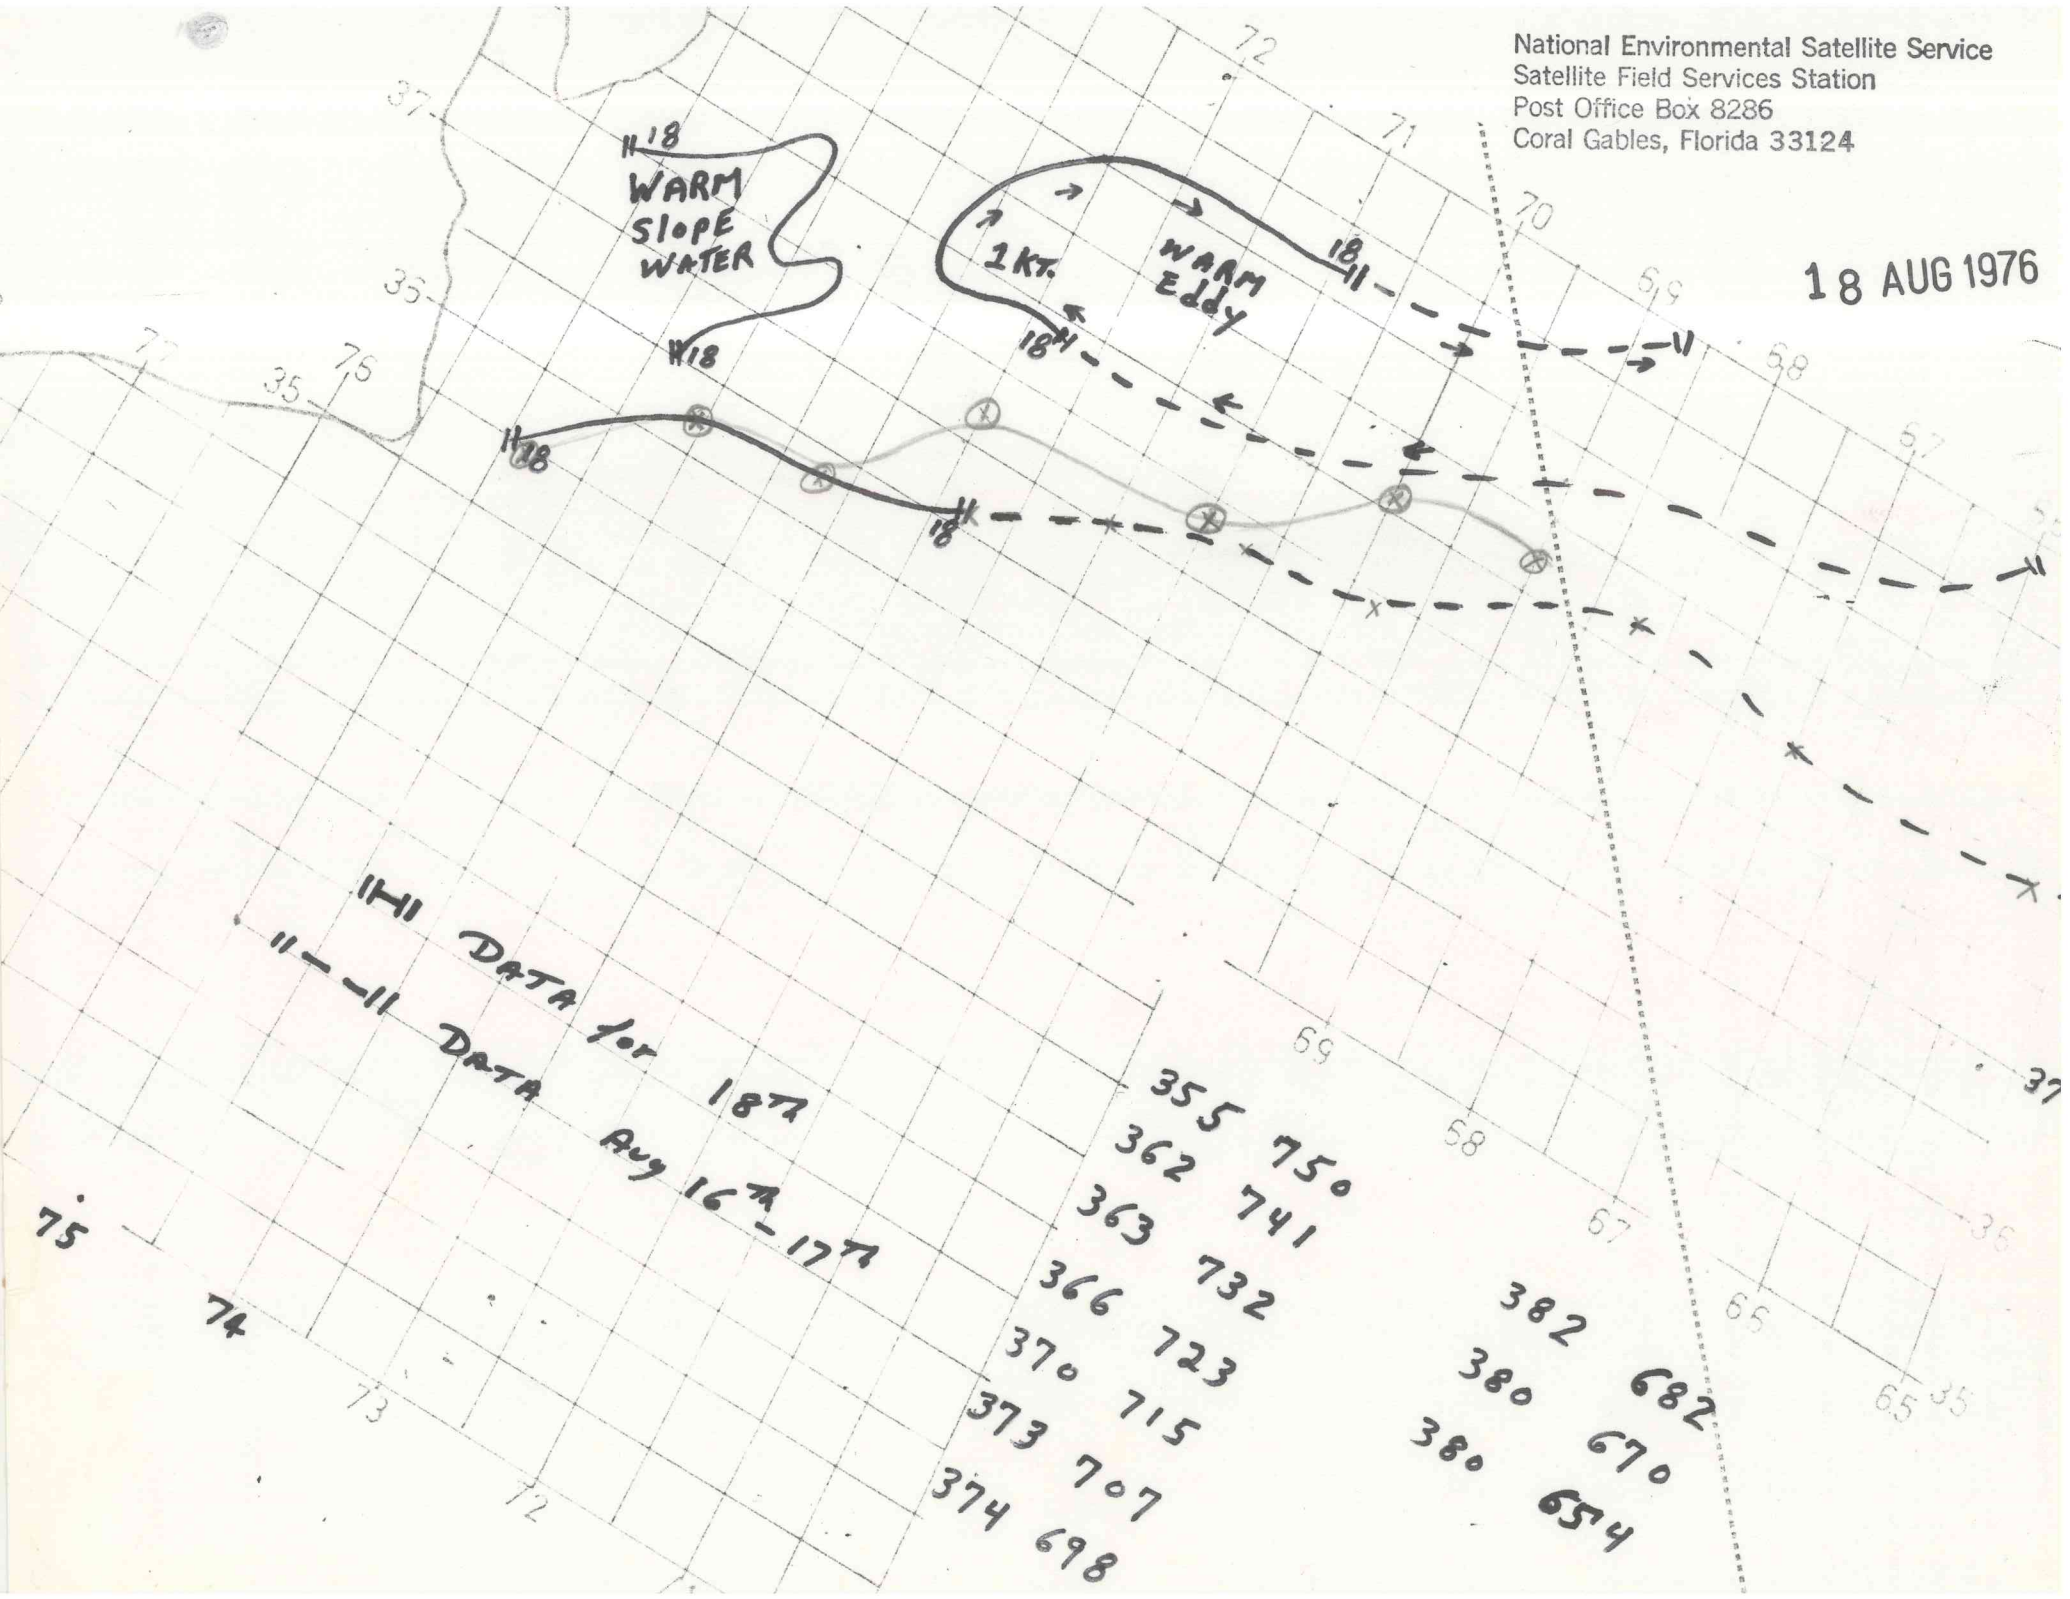 National Environmental Satellite Service
Satellite Field Services Station
Post Office Box 8286
Coral Gables, Florida 33124
18 AUG 1976
72
71
70
69
68
67
37
36
35
76
18
WARM
Slope
WATER
18
1 KT.
WARM
Eddy
18
18
18
18
DATA for 18Th
DATA Aug 16Th - 17Th
355 750
362 741
363 732
366 723
370 715
373 707
374 698
382 682
380 670
380 654
69
68
67
66
65
37
36
35
75
74
73
72